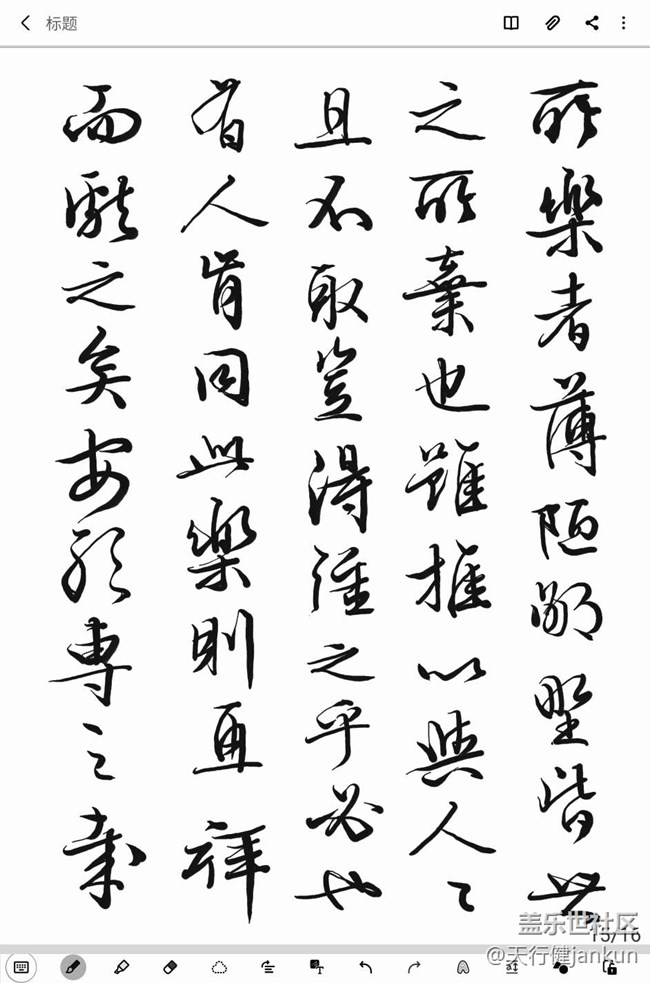 标题
所樂者薄陋鄙野皆世
之所棄也雖推以與人々
且不取豈得強之乎必也
有人肯同此樂則再拜
而獻之矣安敢專之哉
盖乐世社区
15/16
@天行健jankun